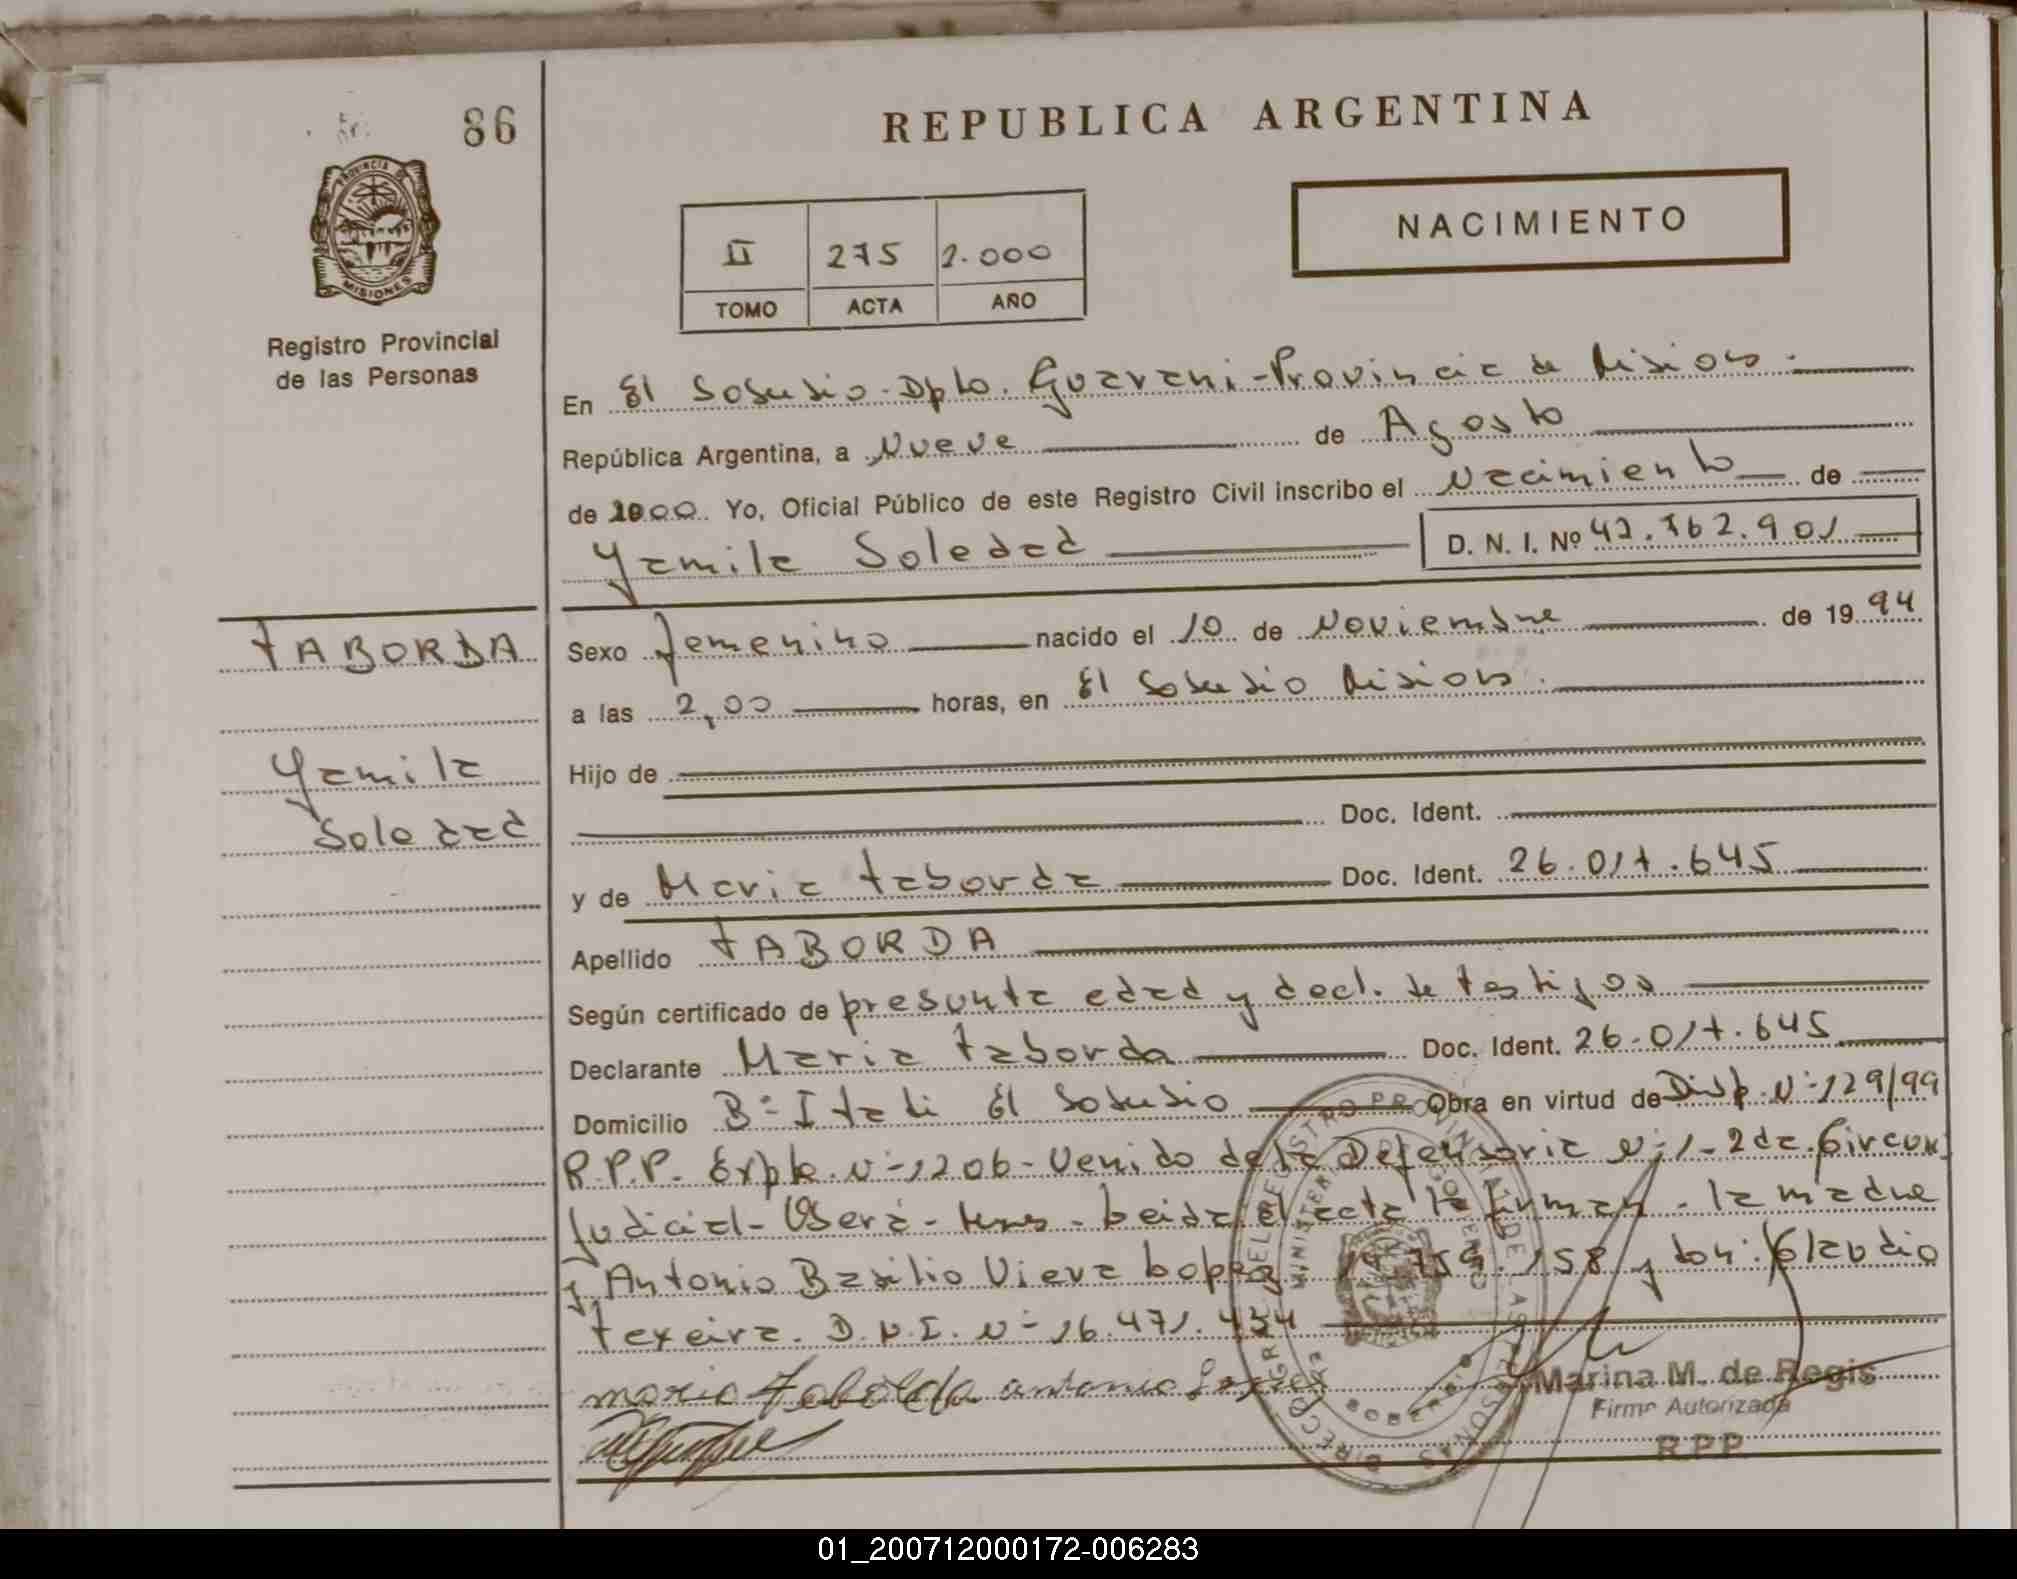 86
PROVINCIA DE
MISIONES
Registro Provincial
de las Personas
REPUBLICA ARGENTINA
NACIMIENTO
II 275 2.000
TOMO ACTA AÑO
En El Soberbio - Dpto. Guarani - Provincia de Misiones.
República Argentina, a Nueve de Agosto
de 2000. Yo, Oficial Público de este Registro Civil inscribo el Nacimiento de
Yamila Soledad D. N. I. Nº 42.762.901
TABORDA
Yamila
Soledad
Sexo femenino nacido el 10 de Noviembre de 1994
a las 2,00 horas, en El Soberbio Misiones.
Hijo de
Doc. Ident.
y de Maria Taborda Doc. Ident. 26.017.645
Apellido TABORDA
Según certificado de presunta edad y decl. de testigos
Declarante Maria Taborda Doc. Ident. 26.017.645
Domicilio Bº Itati El Soberbio Obra en virtud de Disp. Nº 129/99
R.P.P. Expte. Nº 1206 - Venido de la Defensoria Nº 1 - 2da. Circun.
Judicial - Oberá - Mnes - Leida el acta la firman - la madre
y Antonio Basilio Viera Lopez 158 y don: Claudio
Texeira. D.N.I. Nº 16.471.434
maria Taborda antonio Lopez
Marina M. de Regis
Firma Autorizada
R.P.P.
01_200712000172-006283